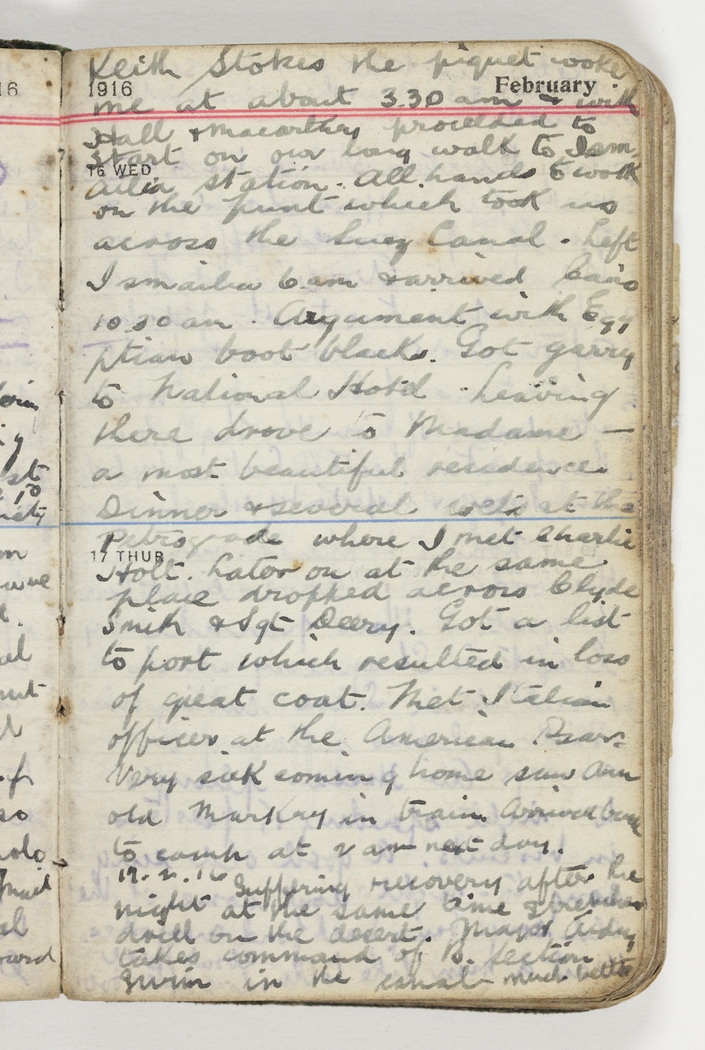 16
Keith Stokes the piquet woke
1916 February
me at about 3.30 am & with
Hall & Macarthy proceeded to
start on our long walk to Ism
16 WED
ailia station. All hands to work
on the punt which took us
across the Suez Canal. Left
Ismailia 6 am & arrived Cairo
10.30 am. Argument with Egy
ptian boot blacks. Got garry
to National Hotel. Leaving
there drove to Madame —
a most beautiful residence.
Dinner & several at the
Petrograde where I met Charlie
17 THUR
Holt. Later on at the same
place dropped across Clyde
Smith & Sgt Deery. Got a list
to port which resulted in loss
of great coat. Met Italian
officer at the American
Very sick coming home saw
old Markay in train. Arrived back
to camp at 2 am next day.
17.2.16 Suffering recovery after the
night at the same time
drill on the desert. Major
takes command of B. Section
Swim in the canal much better